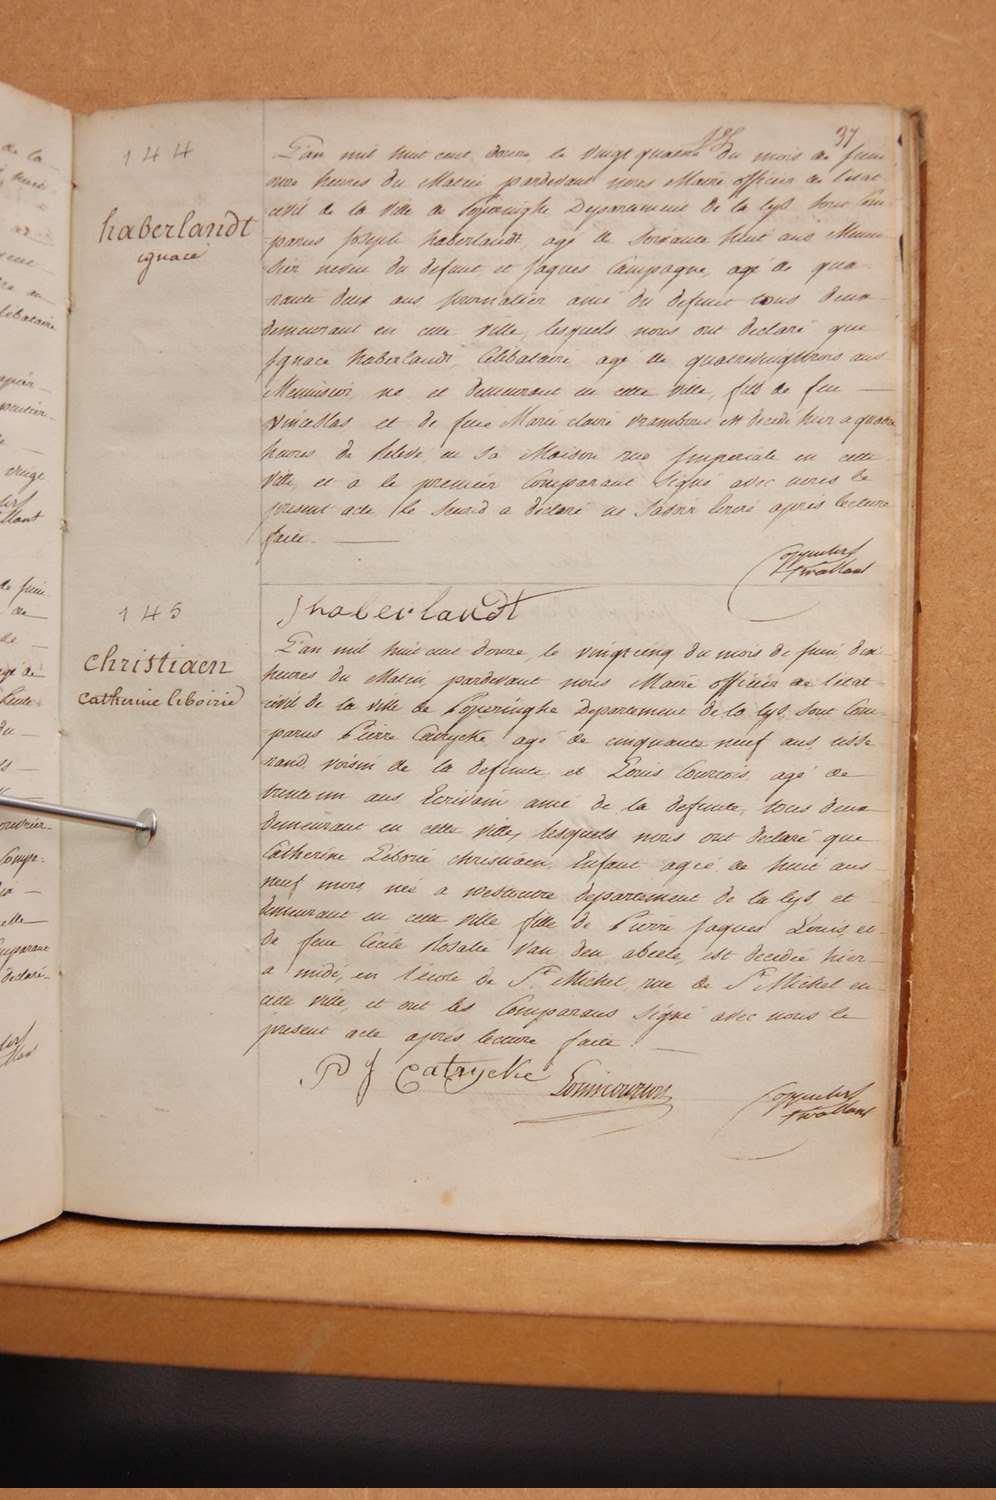 37
144
haberlandt
ignace
L'an mil huit cent douze, le vingt quatre du mois de juin
onze heures du Matin pardevant nous Maire officier de letat
civil de la ville de Poperinghe Departement de la lys, sont Com-
-parus Joseph haberlandt, agé de soixante huit ans Menui
sier neveu du defunt et Jaques Campagne, agé de qua-
rante deux ans journalier ami du defunt tous deux
demeurant en cette ville, lesquels nous ont declaré que
Ignace haberlandt, Celibataire, agé de quatrevingttrois ans
Menuisier, né et demeurant en cette ville, fils de feu
vinceslas et de feue Marie claire est decedé hier a quatre
heures de en sa Maison rue Imperiale en cette
ville, et a le premier Comparant signé avec nous le
present acte, le second a declaré ne savoir écrire après lecture
faite.
J haberlandt
145
christiaen
catherine liboirie
L'an mil huit cent douze, le vingt cinq du mois de juin dix
heures du Matin, pardevant nous Maire officier de letat
civil de la ville de Poperinghe Departement de la lys, sont Com-
-parus Pierre Catrycke agé de cinquante neuf ans tisse
rand, voisin de la defunte, et Louis Courtois, agé de
trente un ans Ecrivain ami de la defunte, tous deux
demeurant en cette ville, lesquels nous ont declaré que
Catherine Liborie christiaen, Enfant agée de huit ans
neuf mois, née a westoutre departement de la lys, et
demeurant en cette ville fille de Pierre Jaques Louis, et
de feue Cécile Rosalie Van den abeele, est decedée hier
a midi, en l'école de St. Michel, rue de St. Michel en
cette ville, et ont les Comparans signé avec nous le
present acte après lecture faite.
P J Catrycke
Louis courtois